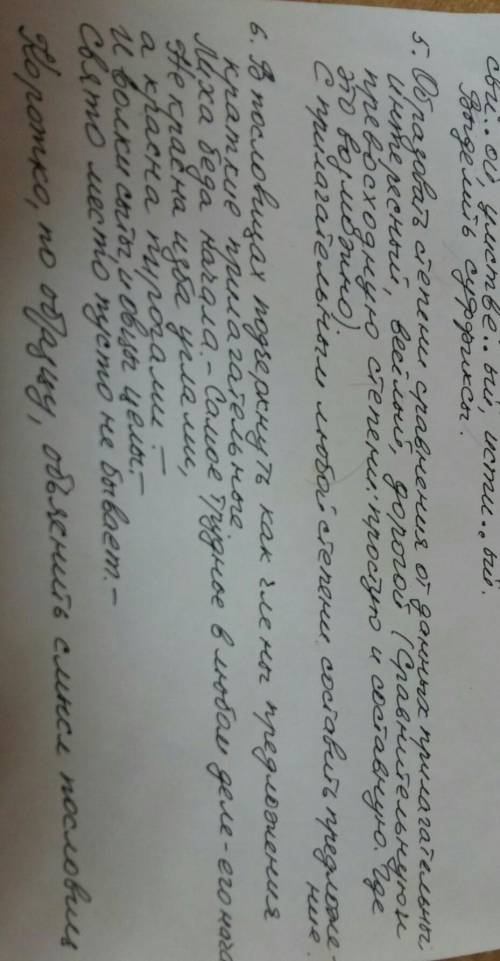 свои..ой, умстве..ый, исти..ый.
Выделить суффиксы.
5. Образовать степени сравнения от данных прилагательны
интересный, весёлый, дорогой (Сравнительную и
превосходную степени: простую и составную. Где
это возможно).
С прилагательным любой степени составить предложе-
ние.
6. В пословицах подчеркнуть как члены предложения
краткие прилагательные.
Лиха беда начала. - Самое трудное в любом деле - его нача
Не красна изба углами,
а красна пирогами. -
И волки сыты, и овцы целы. -
Свято место пусто не бывает. -
Коротко, по образцу, объяснить смысл пословиц